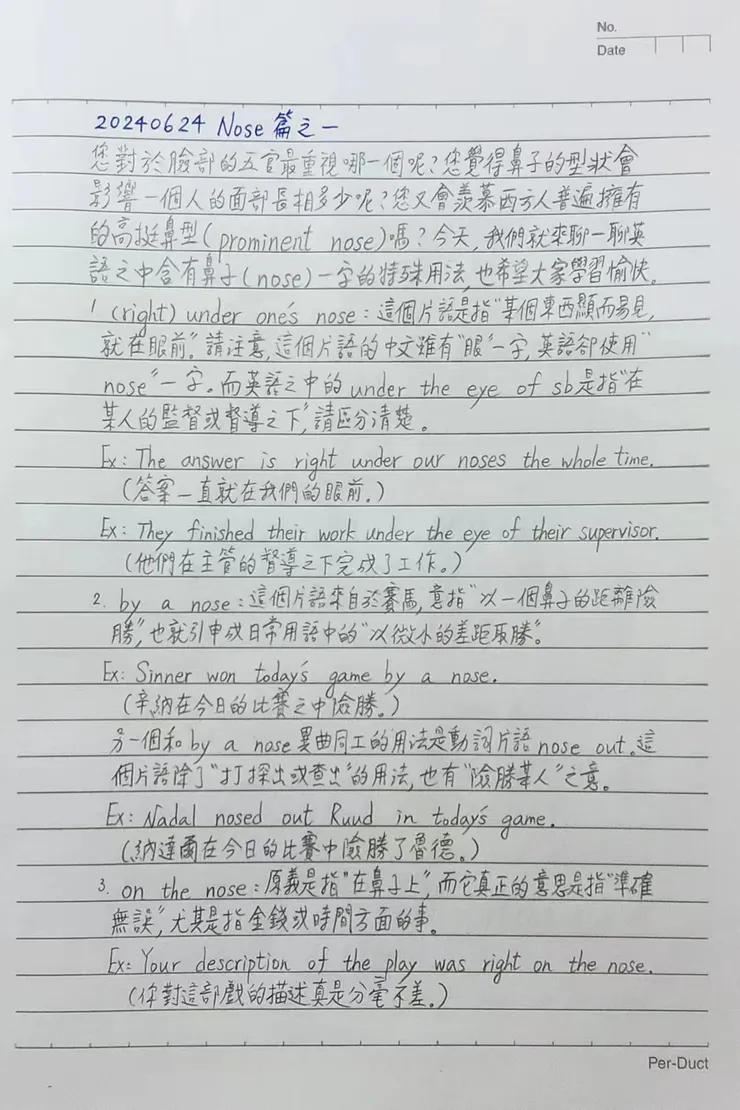 No.
Date
20240624 Nose 篇之一
您對於臉部的五官最重視哪一個呢?您覺得鼻子的型狀會
影響一個人的面部長相多少呢?您又會羨慕西方人普遍擁有
的高挺鼻型(prominent nose)嗎?今天,我們就來聊一聊英
語之中含有鼻子(nose)一字的特殊用法,也希望大家學習愉快。
1 (right) under one's nose:這個片語是指"某個東西顯而易見,
就在眼前"。請注意,這個片語的中文雖有"眼"一字,英語卻使用"
nose"一字。而英語之中的 under the eye of sb是指"在
某人的監督或督導之下",請區分清楚。
Ex: The answer is right under our noses the whole time.
(答案一直就在我們的眼前。)
Ex: They finished their work under the eye of their supervisor.
(他們在主管的督導之下完成了工作。)
2. by a nose:這個片語來自於賽馬,意指"以一個鼻子的距離險
勝",也就引申成日常用語中的"以微小的差距取勝"。
Ex: Sinner won today's game by a nose.
(辛納在今日的比賽之中險勝。)
另一個和 by a nose 異曲同工的用法是動詞片語 nose out。這
個片語除了"打探出或查出"的用法,也有"險勝某人"之意。
Ex: Nadal nosed out Ruud in today's game.
(納達爾在今日的比賽中險勝了魯德。)
3. on the nose:原義是指"在鼻子上",而它真正的意思是指"準確
無誤",尤其是指金錢或時間方面的事。
Ex: Your description of the play was right on the nose.
(你對這部戲的描述真是分毫不差。)
Per-Duct